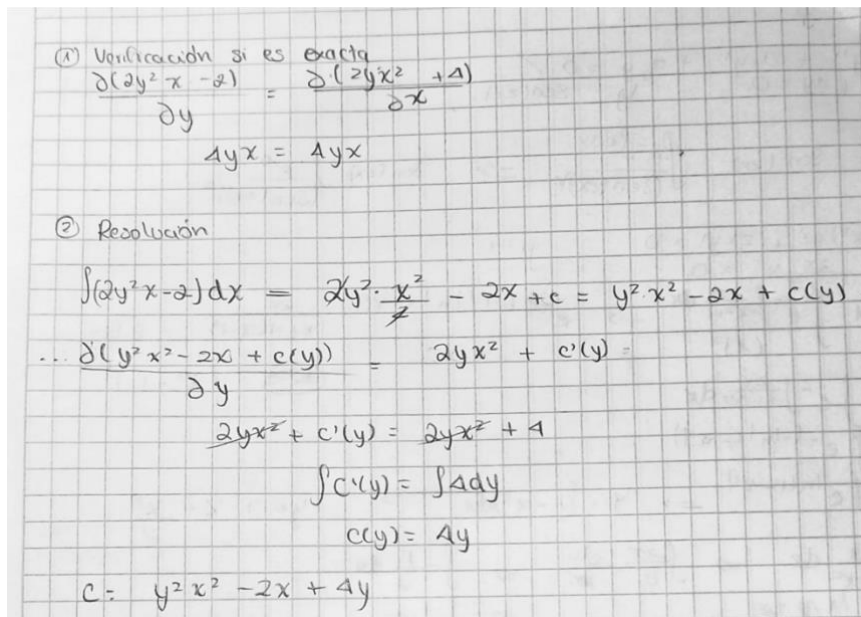 ① Verificación si es exacta
∂(2y² x - 2)/∂y = ∂(2yx² + 4)/∂x
4yx = 4yx
② Resolución
∫(2y²x-2)dx = 2y² · x²/2 - 2x + c = y² · x² - 2x + c(y)
... ∂(y² x² - 2x + c(y))/∂y = 2yx² + c'(y) =
2yx² + c'(y) = 2yx² + 4
∫c'(y) = ∫4dy
c(y) = 4y
C = y² x² - 2x + 4y